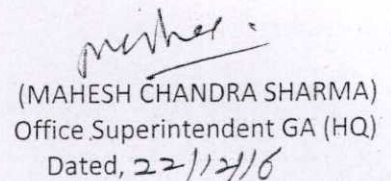 (MAHESH CHANDRA SHARMA)
Office Superintendent GA (HQ)
Dated, 22/12/16